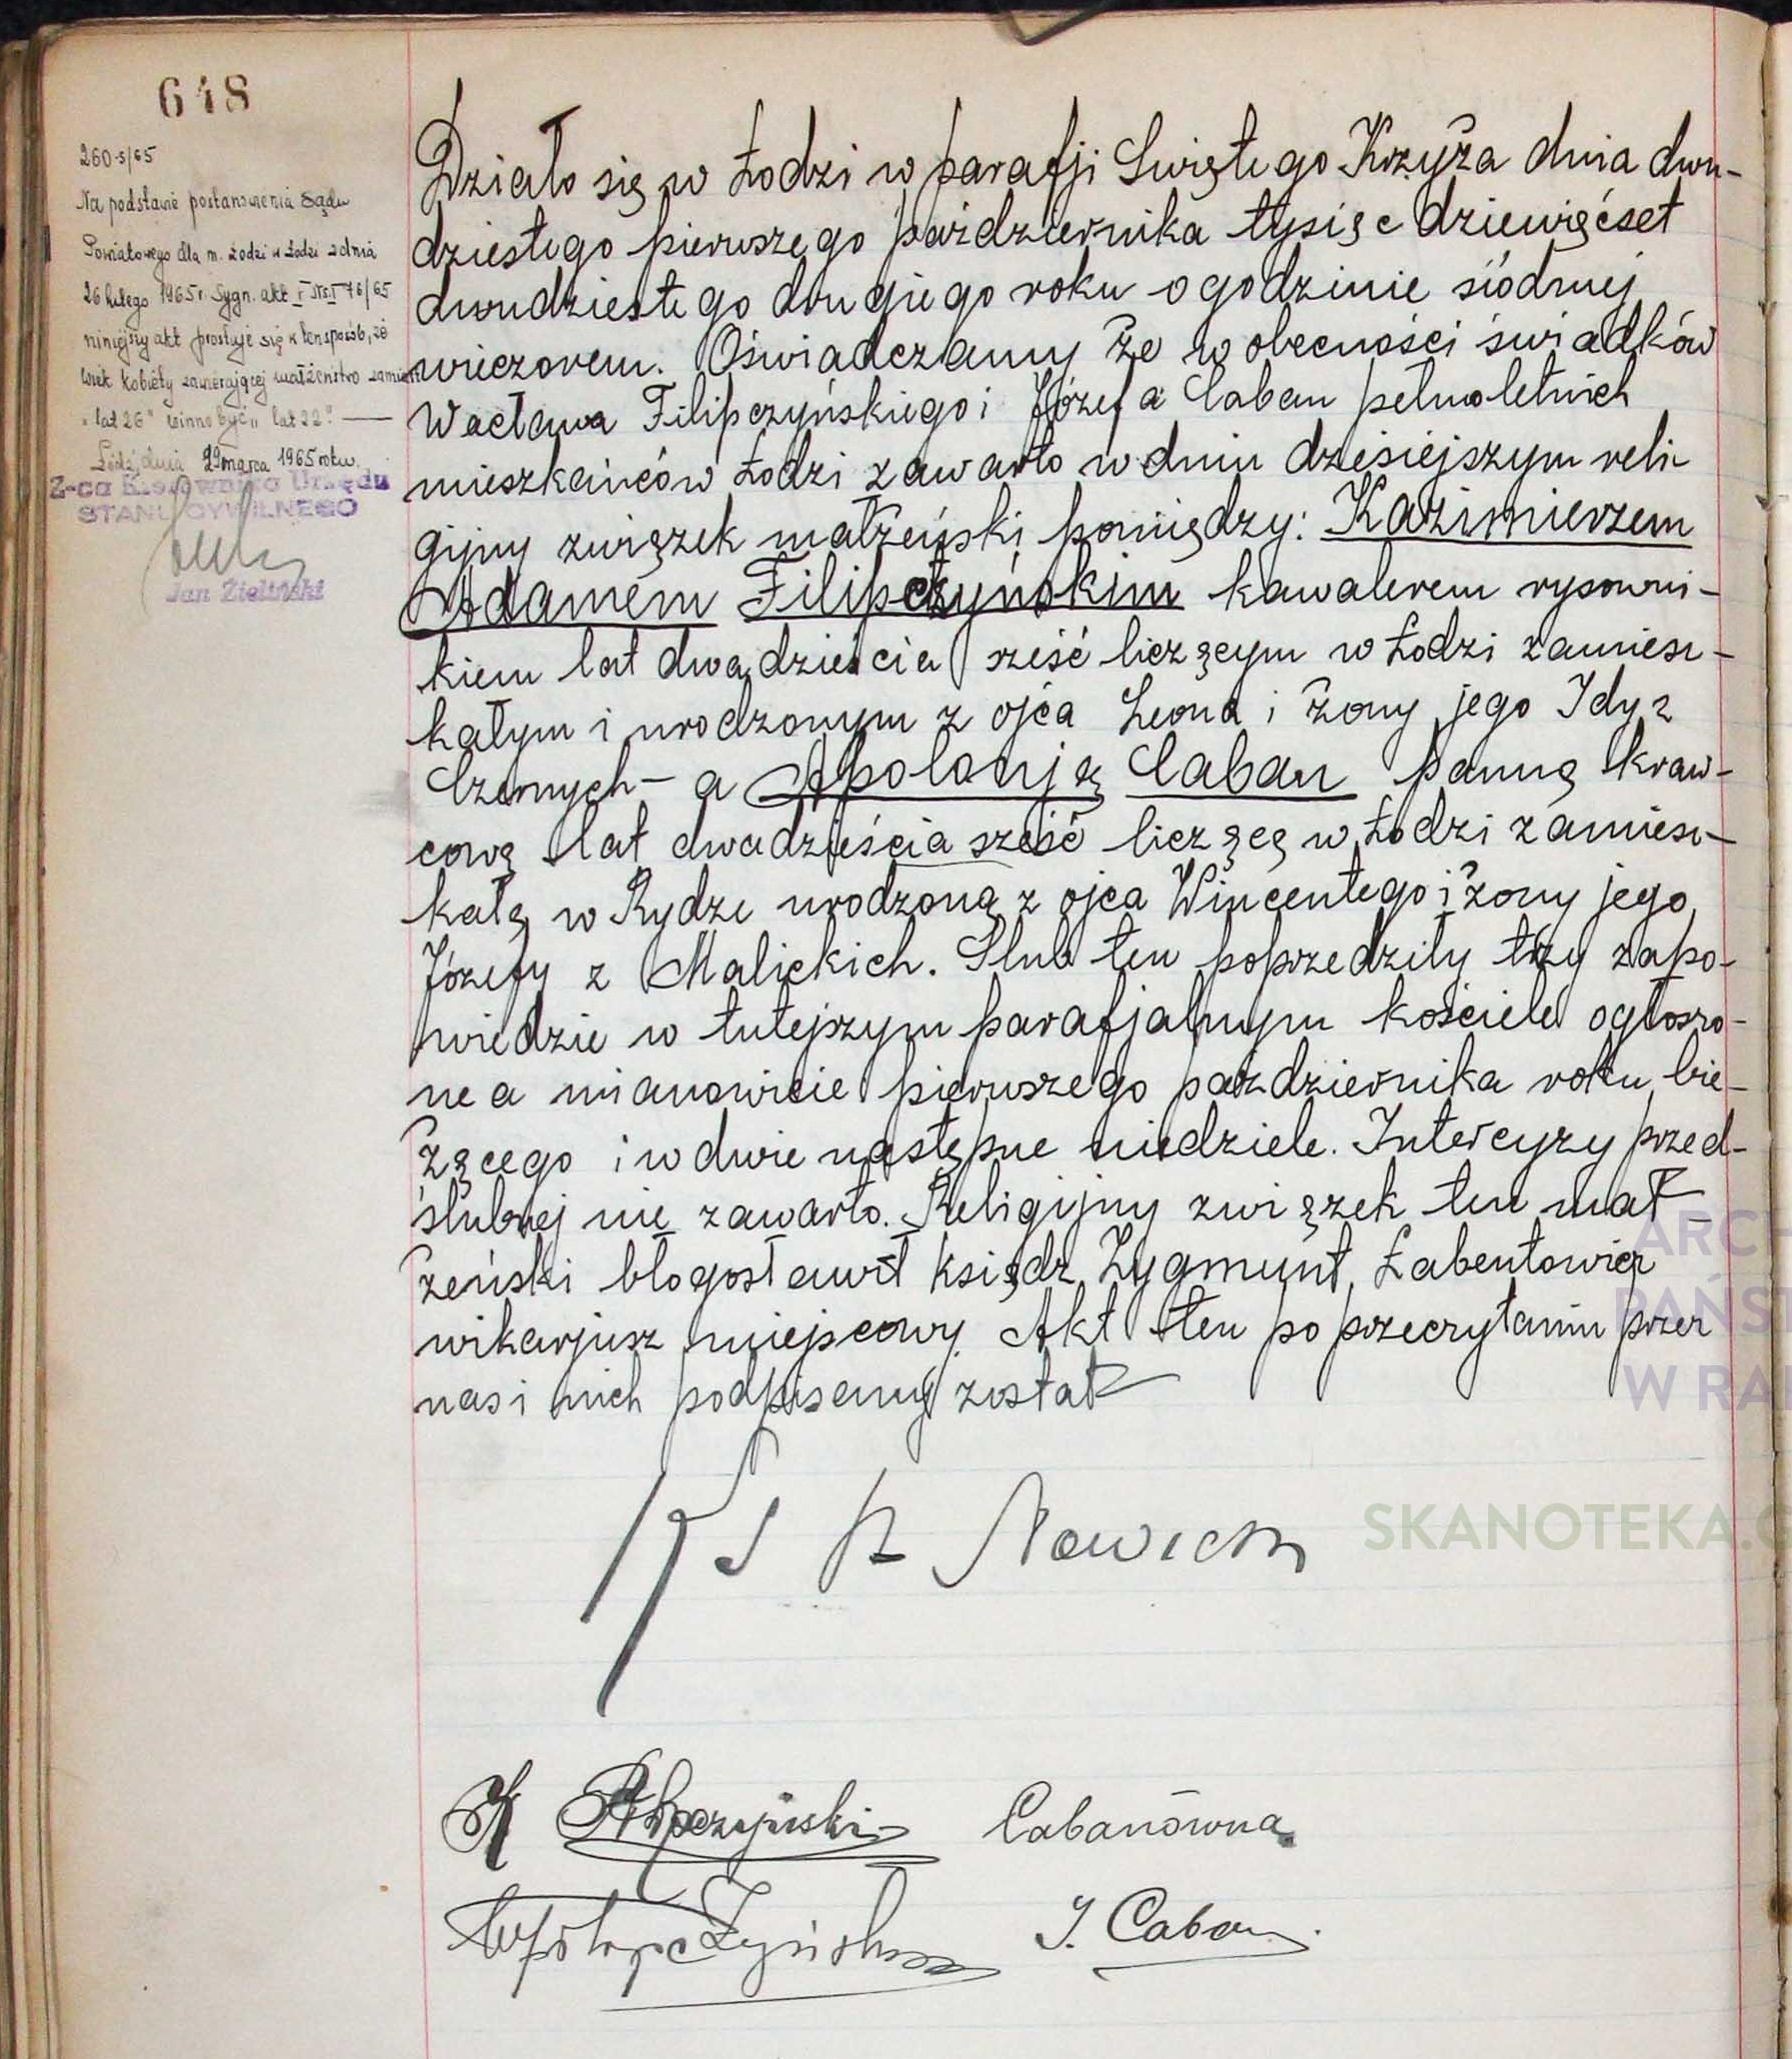 648
260-s/65
Na podstawie postanowienia Sądu
Powiatowego dla m. Łodzi w Łodzi z dnia
26 lutego 1965 r. Sygn. akt I Ns.I 76/65
niniejszy akt prostuje się w ten sposób, że
wiek kobiety zawierającej małżeństwo zamiast
"lat 26" winno być "lat 22".
Łódź, dnia 29 marca 1965 roku.
Z-ca Kierownika Urzędu
STANU CYWILNEGO
Jan Zieliński
Działo się w Łodzi w parafji Świętego Krzyża dnia dwu-
dziestego pierwszego października tysiąc dziewięćset
dwudziestego drugiego roku o godzinie siódmej
wieczorem. Oświadczamy że w obecności świadków
Wacława Filipczyńskiego i Józefa Caban pełnoletnich
mieszkańców Łodzi zawarto w dniu dzisiejszym reli-
gijny związek małżeński pomiędzy: Kazimierzem
Adamem Filipczyńskim kawalerem rysowni-
kiem lat dwadzieścia sześć liczącym w Łodzi zamiesz-
kałym i urodzonym z ojca Leona i żony jego Idy z
Czernych - a Apolonją Caban panną kraw-
cową lat dwadzieścia sześć liczącą w Łodzi zamiesz-
kałą w Rydze urodzoną z ojca Wincentego i żony jego
Józefy z Malickich. Ślub ten poprzedziły trzy zapo-
wiedzie w tutejszym parafjalnym kościele ogłoszo-
ne a mianowicie pierwszego października roku bie-
żącego i w dwie następne niedziele. Intercyzy przed-
ślubnej nie zawarto. Religijny związek ten mał-
żeński błogosławił ksiądz Zygmunt Łabentowicz
wikarjusz miejscowy. Akt ten po przeczytaniu przez
nas i nich podpisany został
Ks Nowicki
K Filipczyński Cabanówna
W Filipczyński J. Caban
ARCH
PAŃST
W RA
SKANOTEKA.